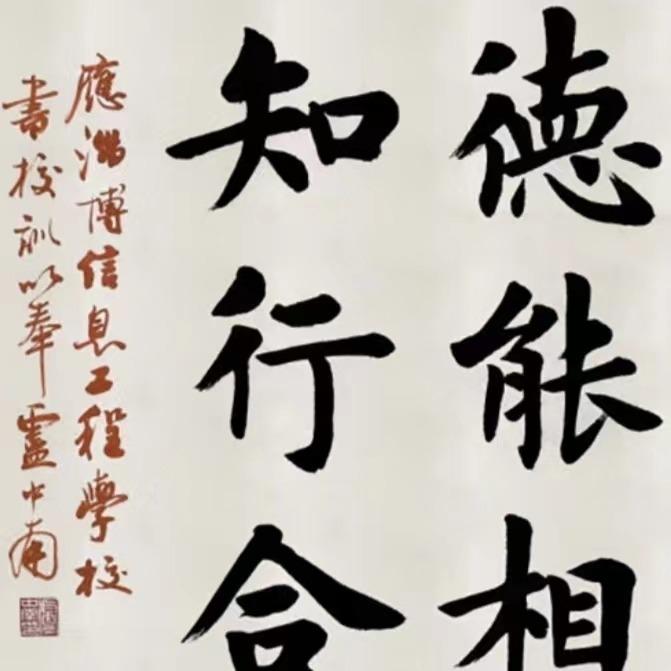 德能相
知行合
應淄博信息工程學校
書校訓以奉盧中南